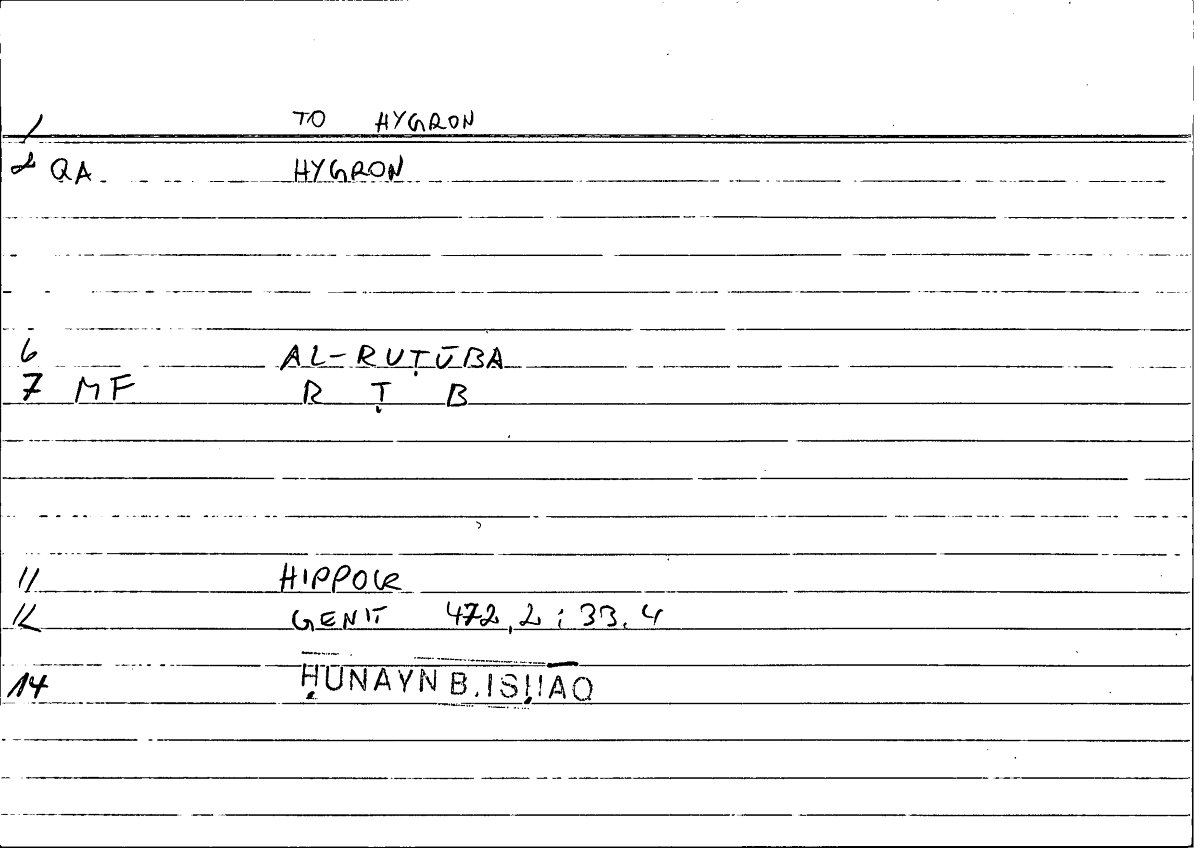 1 TO HYGRON
2 QA HYGRON
6 AL-RUṬŪBA
7 MF R Ṭ B
11 HIPPOCR
12 GENIT 472,2; 33.4
14 ḤUNAYN B. ISḤĀQ